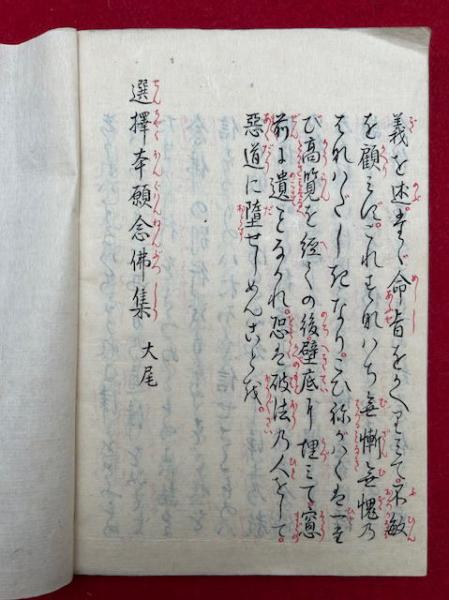 義を述すぐ命旨をかへりみて不敏
を顧みずこれすなハち無慚無愧乃
はなハだしきなりこひねがハくハ一た
び高覧を経ての後壁底に埋ミて窓
前に遺ことなかれ恐は破法乃人をして
悪道に墮せしめんことを
選擇本願念佛集 大尾